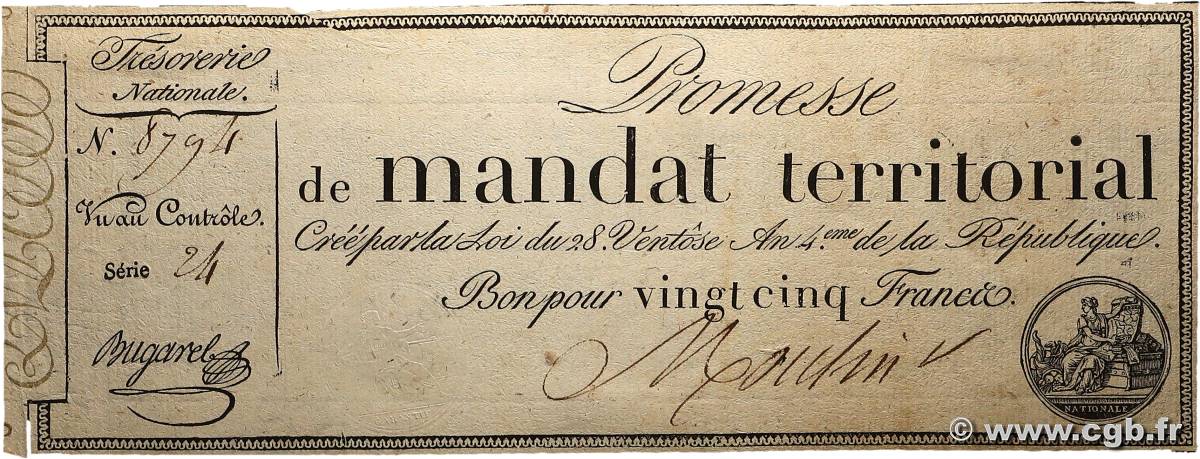 Trésorerie
Nationale.
N. 8794
Vu au Contrôle.
Série 24
Bugarel
Promesse
de mandat territorial
Créé par la Loi du 28. Ventôse An 4.eme de la République.
Bon pour vingt cinq Francs.
Moulin
NATIONALE
© www.cgb.fr